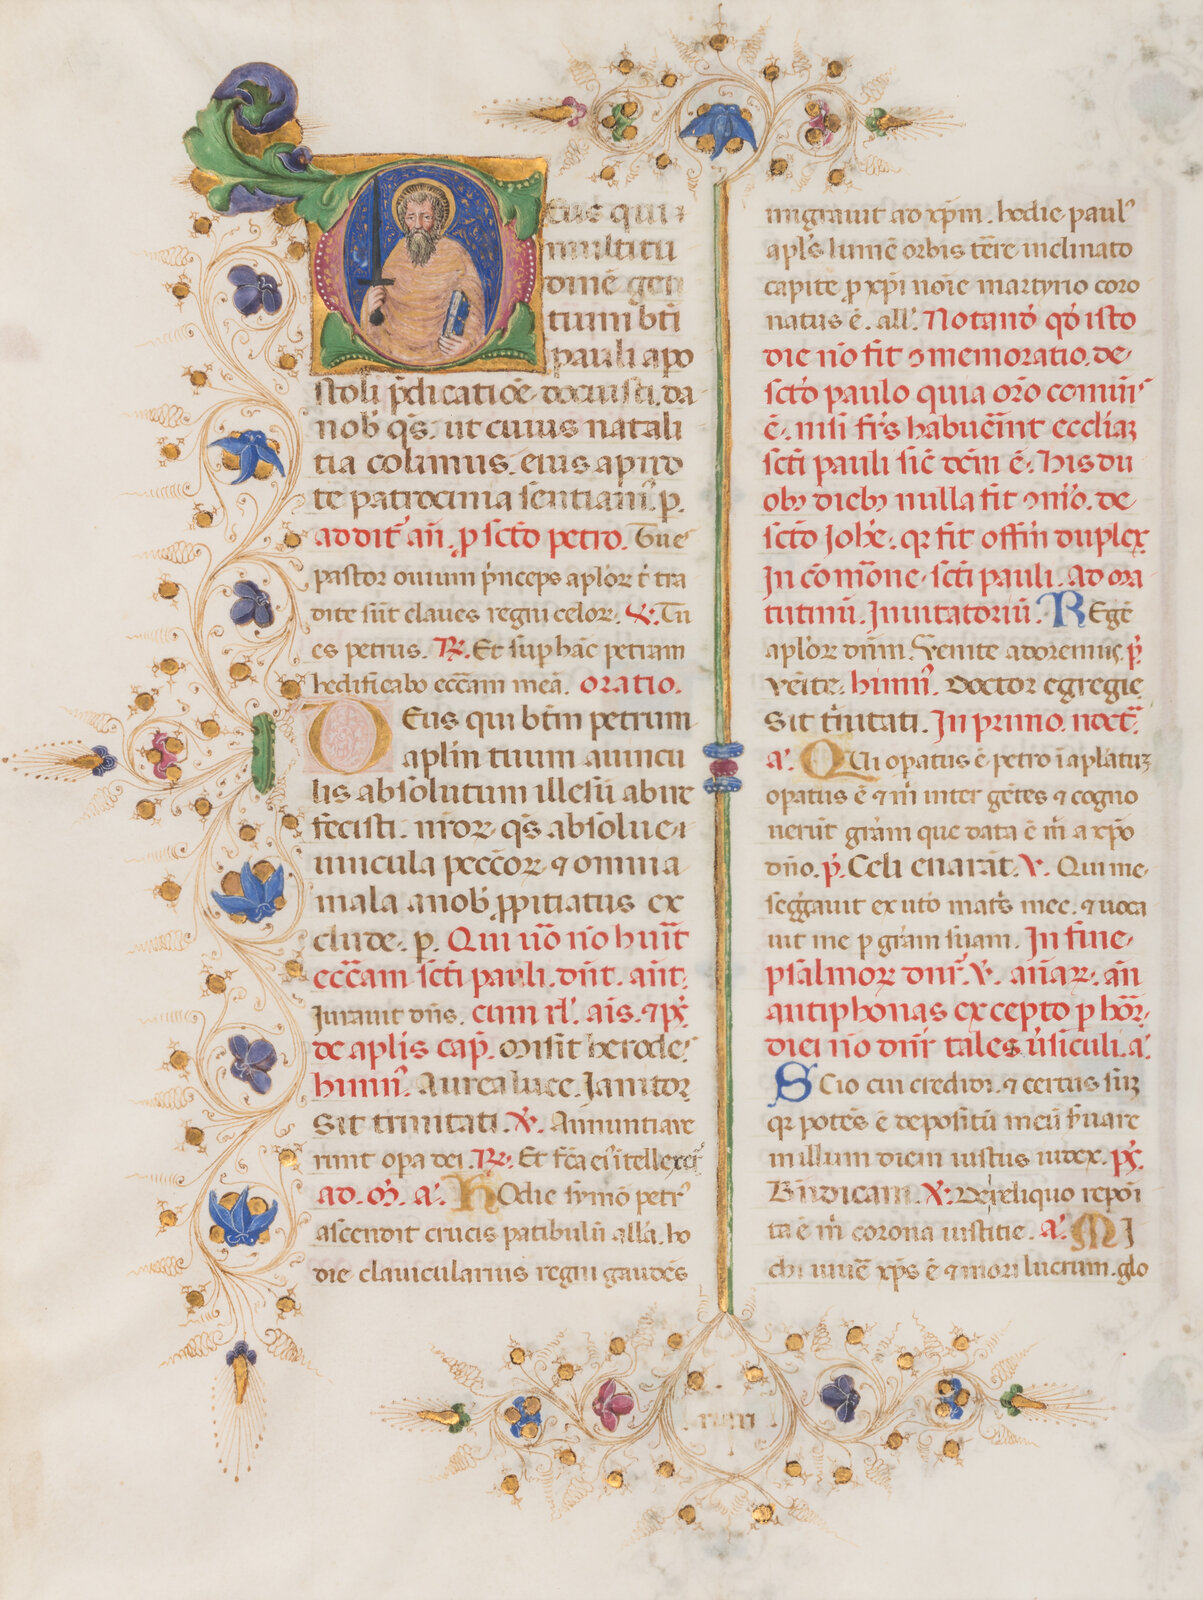 Eus qui
multitu
dinē gen
tium bti
pauli apo
stoli p̄dicatiōe docuisti. da
nob' qs. ut cuius natali
tia colimus. eius apud
te patrocinia sentiam'. p.
addit' añ. p scto petro. Tu e'
pastor ovium p̄nceps aplor t' tra
dite sūt claues regni celor. V. Tu
es petrus. R. Et sup hāc petram
hedificabo ecc̄am meā. oratio.
DEus qui btm petrum
aplm tuum a uincu
lis absolutum illesū abire
fecisti. nr̄or qs absolue
uincula pecc̄or. ⁊ omnia
mala a nob' ppitiatus ex
clude. p. Qui u̅o no̅ hūnt
ecc̄am scti pauli. dnt. ant.
Jurauit dn̄s. cum rl'. ais. ⁊ ps'.
de aplis cap̄. Misit herodes
himn'. Aurea luce. Janitor
Sit trinitati. V. Annuntiaue
runt opa dei. R. Et fc̄a ei' itellexer̄
ad. M. a'. HOdie symō petr'
ascendit crucis patibulū alla. ho
die clauicularius regni gaudēs
migrauit ad xp̄m. hodie paul'
apl's lumē orbis tēre inclinato
capite p xpi noīe martyrio coro
natus ē. all'. Notand' qd' isto
die no̅ fit ɔmemoratio. de
sc̄to paulo quia or̄o comūis
ē. nisi fr̄s habuēint eccliaz
scti pauli sic̄ dc̄m ē. His du
ob; dieb; nulla fit ɔmō. de
sc̄to Joh̄e. qr fit offm̄ duplex
In cōm̄one. scti pauli. Ad ma
tutinū. Inuitatoriū. REgē
aplor dn̄m. Venite adoremus. p̄.
veīte. himn'. Doctor egregie
Sit trīnitati. In primo. noct'.
a'. QUi opatus ē petro ī aplatuz
opatus ē ⁊ m̄ inter gētes ⁊ cogno
uerūt grām que data ē m̄ a xpo
dn̄o. p̄. Celi enarāt. V. Qui me
segg̃auit ex uto mat̄s mee. ⁊ uoca
uit me p gram suam. In fine
psalmor dn̄r. V. añar. añ
antiphonas excepto p hōr.
diei no̅ dn̄r tales u̅siculi. a'.
SCio cui credidi. ⁊ certus sūz
qr potēs ē depositū meū s̄uare
in illum diem iustus iudex. ps'.
Bn̄dicam. V. De reliquo repoī
ta ē m̄ corona iustitie. a'. MI
chi uiuē xps ē ⁊ mori lucrum. glo